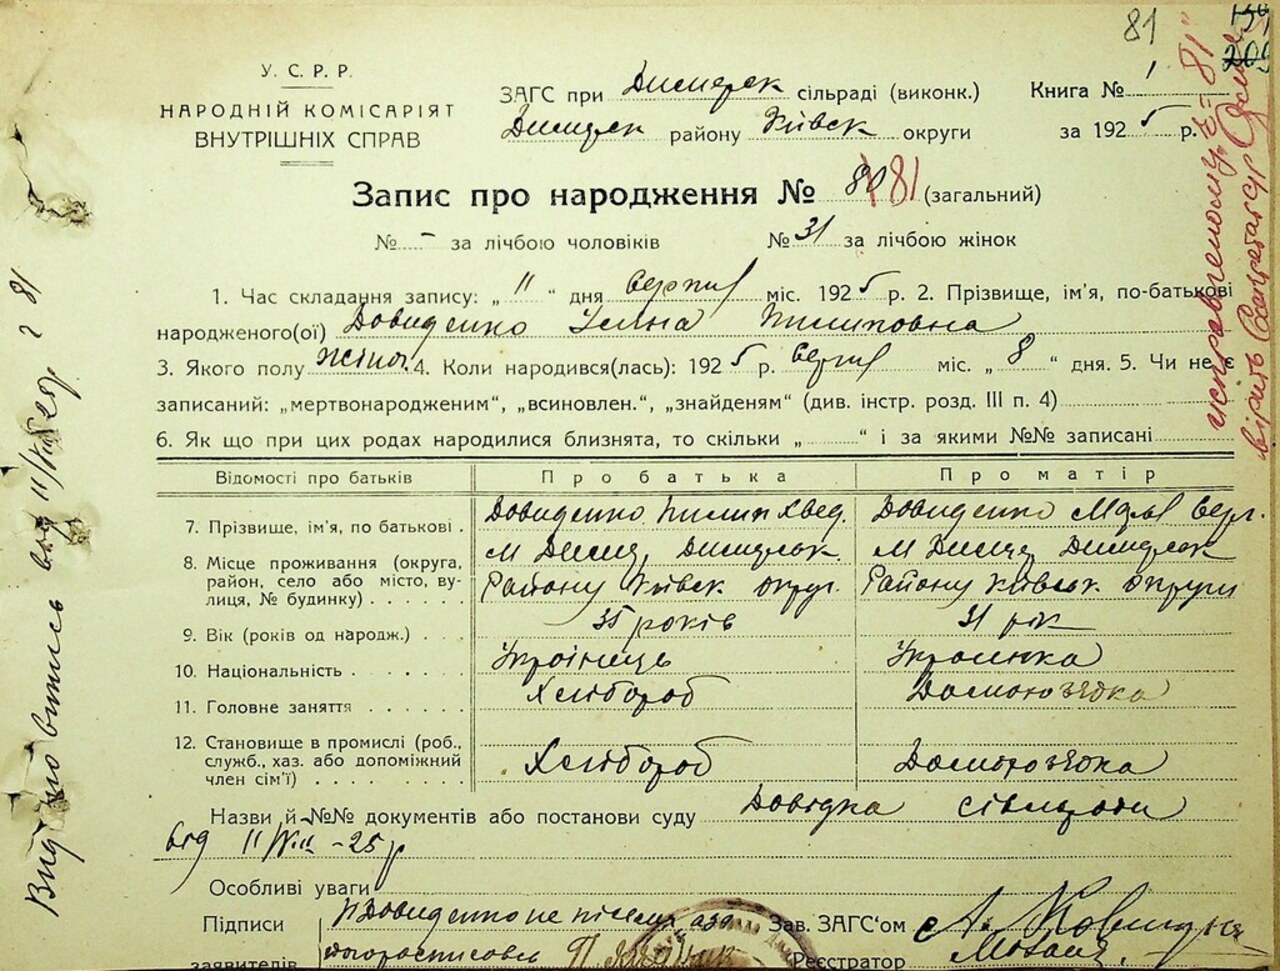 81
У. С. Р. Р.
НАРОДНІЙ КОМІСАРІЯТ
ВНУТРІШНІХ СПРАВ
ЗАГС при Димерск сільраді (виконк.) Книга № 1
Димерск району Київск округи за 1925 р.
Запис про народження № 80 81 (загальний)
№ - за лічбою чоловіків № 31 за лічбою жінок
1. Час складання запису: „ 11 “ дня Серпня міс. 1925 р. 2. Прізвище, ім'я, по-батькові
народженого(ої) Довиденко Уляна Пилиповна
3. Якого полу жіноч. 4. Коли народився(лась): 1925 р. Серпня міс. „ 8 “ дня. 5. Чи не є
записаний: „мертвонародженим“, „всиновлен.“, „знайденям“ (див. інстр. розд. III п. 4)
6. Як що при цих родах народилися близнята, то скільки „ “ і за якими №№ записані
Відомості про батьків Про батька Про матір
7. Прізвище, ім'я, по батькові . Довиденко Пилип Хвед. Довиденко
8. Місце проживання (округа, м Димер, Димерськ. м Димер Димерськ
район, село або місто, ву- Району Київск округ. Району Київськ округи
лиця, № будинку)
9. Вік (років од народж.) 35 років 31 рік
10. Національність Українець Українка
11. Головне заняття Хлібороб Домогосподарка
12. Становище в промислі (роб.,
служб., хаз. або допоміжний Хлібороб
член сім'ї)
Назви й №№ документів або постанови суду Довідка сівльради
від 11/VIII -25 р
Особливі уваги
Підписи П Довиденко не письмен, а за Зав. ЗАГС'ом
заявителів Реєстратор
Видано випись від 11/VIII 25 р 81
исправленому 81
вірить Секретарь